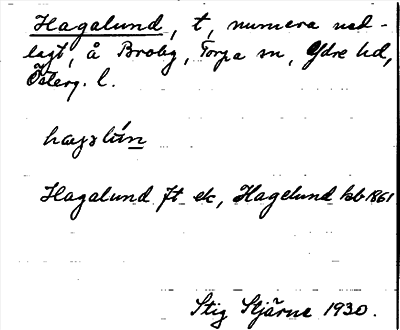 Hagalund, t, numera ned-
lagt, å Broby, Torpa sn, Ydre hd,
Österg. l.
Hagalund ft ek, Hagelund kb 1861
Stig Stjärne 1930.